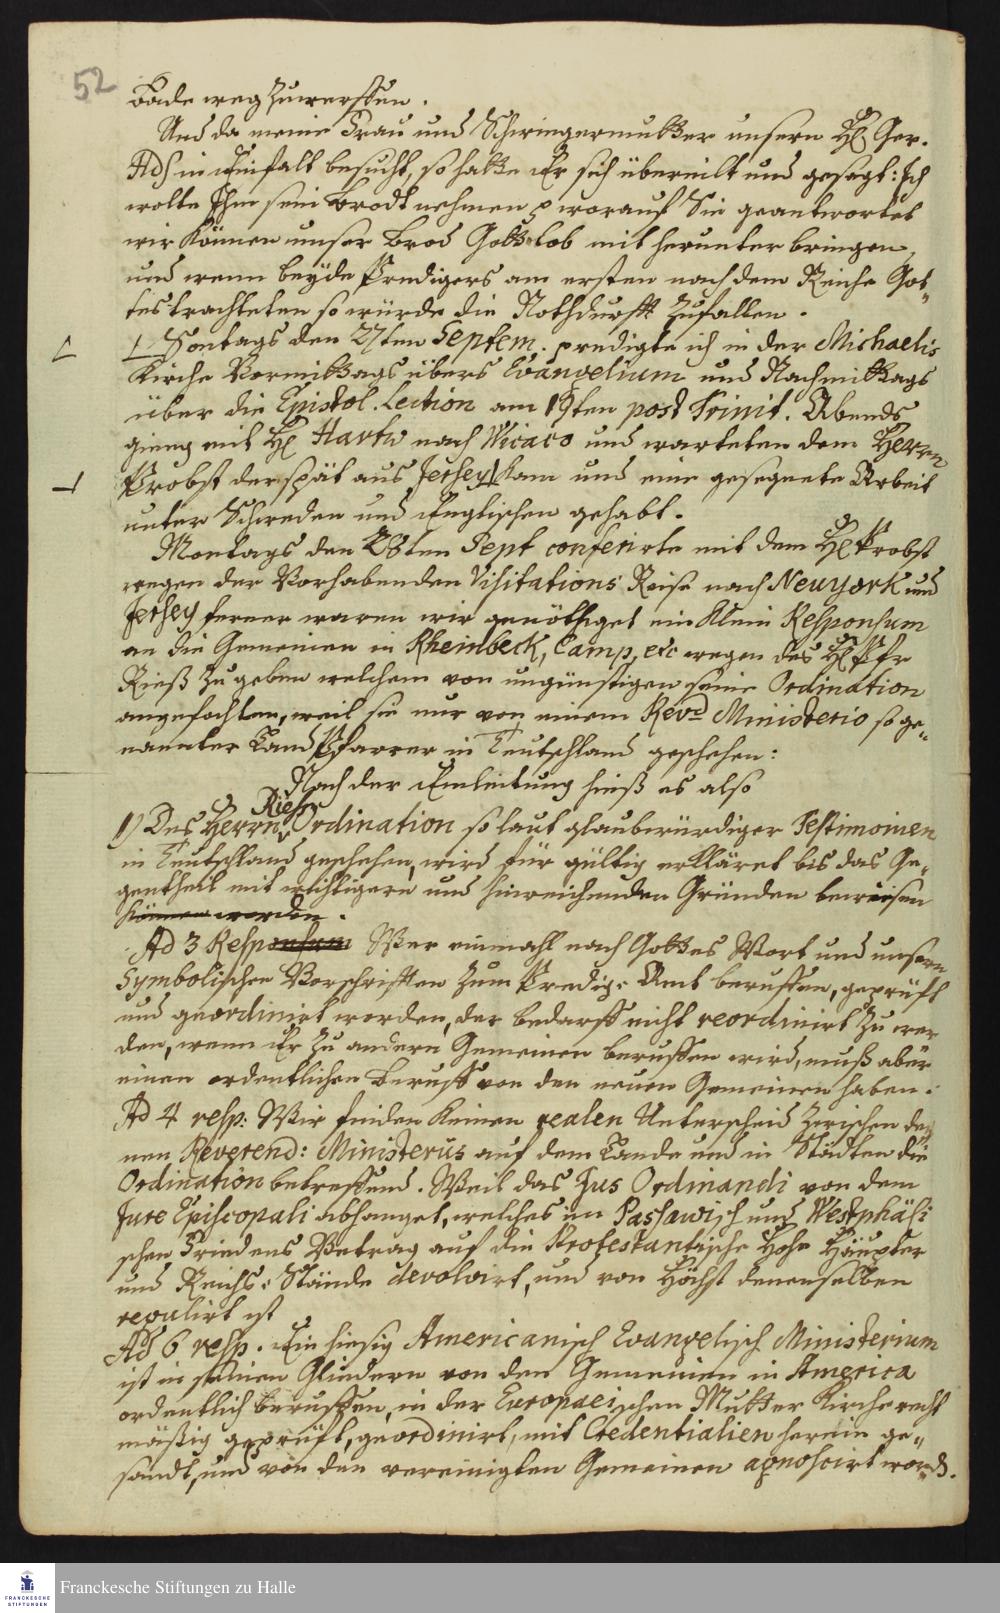 52
Bade wegzuwerffen.
Und da meine Frau und Schwiegermutter unsern H Ger.
Ads in Einfalt besucht, so hatte Er sich übereilt und gesagt: Ich
wolte Ihm sein Brodt nehmen p worauf Sie geantwortet
wir können unser Brod Gottlob mit herunter bringen,
und wenn beyde Predigers am ersten nach dem Reiche Got„
tes trachteten so würde die Nothdurfft zufallen.
Sontags den 27ten Septem. predigte ich in der Michaelis
Kirche Vormittags übers Evangelium und Nachmittags
über die Epistol. Lection am 19ten post Trinit. Abends
gieng mit H Hartw nach Wicaco und warteten dem Herrn
Probst der spät aus Jersey kam und eine gesegnete Arbeit
unter Schweden und Englischen gehabt.
Montags den 28ten Sept conferirte mit dem H Probst
wegen der Vorhabenden Visitations Reise nach Newyork und
Jersey ferner waren wir genöthiget ein klein Responsum
an die Gemeinen in Rheinbeck, Camp, etc wegen des H Pfr
Rieß zu geben welchem von ungünstigen seine Ordination
angefochten, weil sie nur von einem Revd Ministerio so ge„
nannter Land Pfarrer in Teutschland geschehen:
Nach der Einleitung hieß es also
1) Des Herrn Riesen Ordination so laut glaubwürdiger Testimoinen
in Teutschland geschehen, wird für gültig erkläret bis das Ge„
gentheil mit wichtigern und hinreichenden Gründen bewiesen
können worden.
Ad 3 Responsum Wer einmahl nach Gottes Wort und unsern
Symbolischen Vorschrifften zum Predig. Amt beruffen, geprüft
und geordinirt worden, der bedarff nicht reordinirt zu wer
den, wenn Er zu andern Gemeinen beruffen wird, muß aber
einen ordentlichen Beruff von den neuen Gemeinen haben.
Ad 4 resp: Wir finden keinen realen Unterscheid zwischen de
nen Reverend: Ministeriis auf dem Lande und in Städten die
Ordination betreffend. Weil das Jus Ordinandi von dem
Jure Episcopali abhanget, welches im Passawisch und Westphäli
schen Friedens Vertrag auf die Protestantische Hohe Häupter
und Reichs Stände devolvirt, und von Höchst denenselben
regulirt ist
Ad 6 resp. Ein hiesig Americanisch Evangelisch Ministerium
ist in seinen Gliedern von den Gemeinen in America
ordentlich beruffen, in der Europaeischen Mutter Kirche recht
mäßig geprüft, geordinirt, mit Credentialien herein ge„
sandt, und von den vereinigten Gemeinen agnoscirt word.
FRANCKESCHE
STIFTUNGEN
Franckesche Stiftungen zu Halle